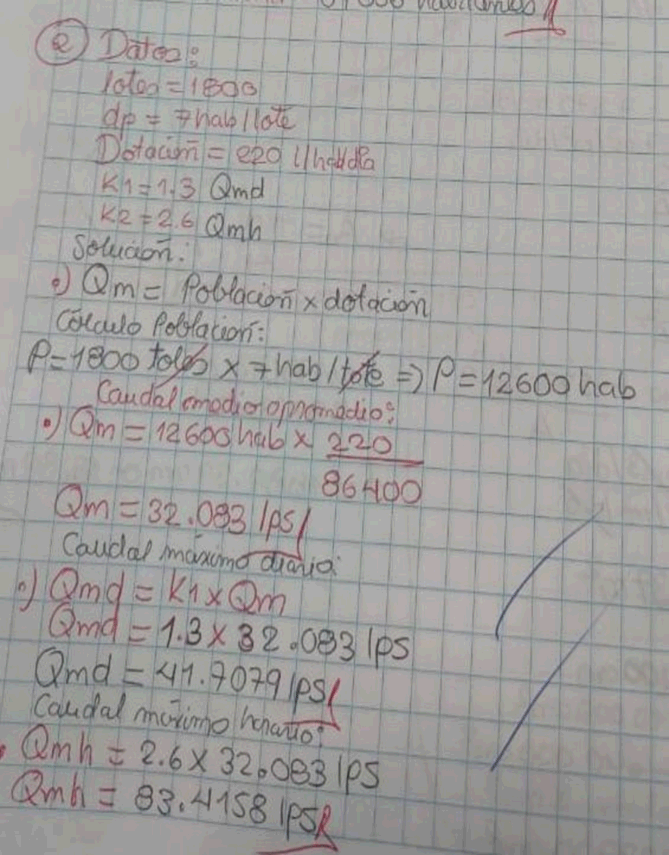 ② Datos:
lotes = 1800
dp = 7 hab/lote
Dotación = 220 l/hab/día
K1 = 1.3 Qmd
K2 = 2.6 Qmh
Solución:
•) Qm = Población x dotación
Cálculo Población:
P = 1800 lotes x 7 hab/lote => P = 12600 hab
Caudal medio o promedio:
•) Qm = 12600 hab x 220
86400
Qm = 32.083 lps
Caudal máximo diario:
•) Qmd = K1 x Qm
Qmd = 1.3 x 32.083 lps
Qmd = 41.7079 lps
Caudal máximo horario:
• Qmh = 2.6 x 32.083 lps
Qmh = 83.4158 lps